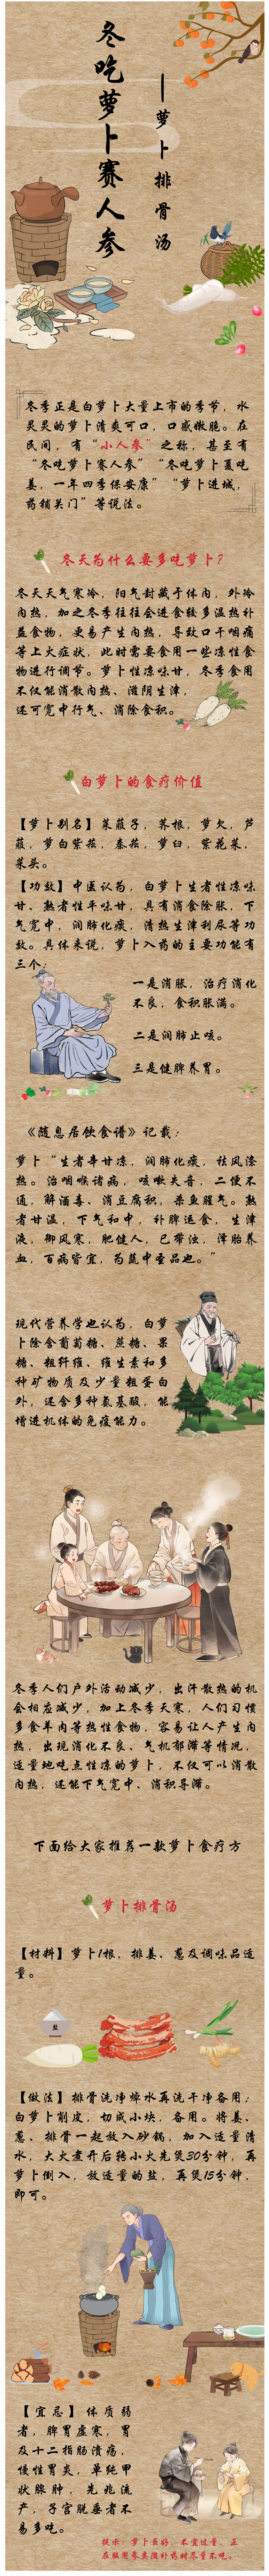 冬吃萝卜赛人参
—萝卜排骨汤
冬季正是白萝卜大量上市的季节，水
灵灵的萝卜清爽可口，口感嫩脆。在
民间，有“小人参”之称，甚至有
“冬吃萝卜赛人参”“冬吃萝卜夏吃
姜，一年四季保安康”“萝卜进城，
药铺关门”等说法。
冬天为什么要多吃萝卜？
冬天天气寒冷，阳气封藏于体内，外冷
内热，加之冬季往往会进食较多温热补
益食物，更易产生内热，导致口干咽痛
等上火症状，此时需要食用一些凉性食
物进行调节。萝卜性凉味甘，冬季食用
不仅能消散内热、滋阴生津，
还可宽中行气、消除食积。
白萝卜的食疗价值
【萝卜别名】莱菔子，荠根，萝欠，芦
菔，萝白紫菘，秦菘，萝臼，紫花菜，
菜头。
【功效】中医认为，白萝卜生者性凉味
甘、熟者性平味甘，具有消食除胀，下
气宽中，润肺化痰，清热生津利尿等功
效。具体来说，萝卜入药的主要功能有
三个：
一是消胀，治疗消化
不良，食积胀满。
二是润肺止咳。
三是健脾养胃。
《随息居饮食谱》记载：
萝卜“生者辛甘凉，润肺化痰，祛风涤
热。治咽喉诸病，咳嗽失音，二便不
通，解酒毒、消豆腐积，杀鱼腥气。熟
者甘温，下气和中，补脾运食，生津
液，御风寒，肥健人，已带浊，泽胎养
血，百病皆宜，为蔬中圣品也。”
现代营养学也认为，白萝
卜除含葡萄糖、蔗糖、果
糖、粗纤维、维生素和多
种矿物质及少量粗蛋白
外，还含多种氨基酸，能
增进机体的免疫能力。
冬季人们户外活动减少，出汗散热的机
会相应减少，加上冬季天寒，人们习惯
多食羊肉等热性食物，容易让人产生内
热，出现消化不良、气机郁滞等情况，
适量地吃点性凉的萝卜，不仅可以消散
内热，还能下气宽中、消积导滞。
下面给大家推荐一款萝卜食疗方
萝卜排骨汤
【材料】萝卜1根，排姜、葱及调味品适
量。
盐
【做法】排骨洗净焯水再洗干净备用；
白萝卜削皮，切成小块，备用。将姜、
葱、排骨一起放入砂锅，加入适量清
水，大火煮开后转小火先煲30分钟，再
萝卜倒入，放适量的盐，再煲15分钟，
即可。
【宜忌】体质弱
者，脾胃虚寒，胃
及十二指肠溃疡，
慢性胃炎，单纯甲
状腺肿，先兆流
产，子宫脱垂者不
易多吃。
提示：萝卜虽好，不宜过量，正
在服用参类滋补药时尽量不吃。